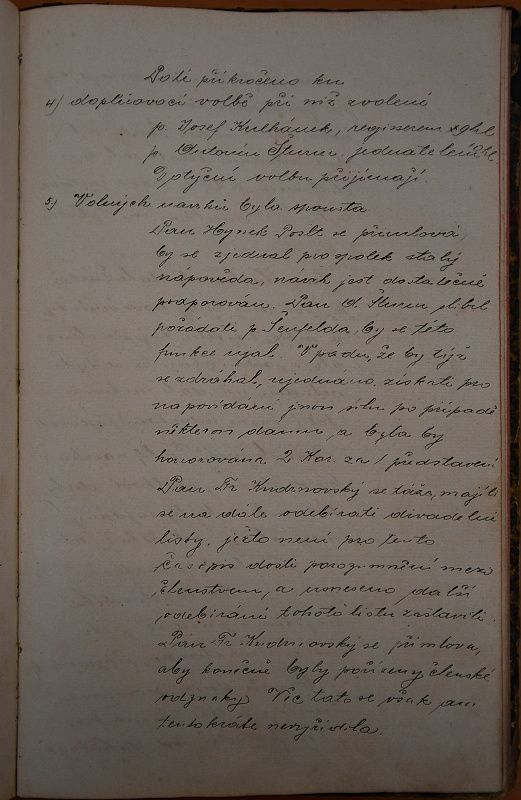 Poté přikročeno ku
4) doplňovací volbě při níž zvoleni
p. Josef Kulhánek, regisserem
p. Antonín Šturm, jednatelem
Dotyční volbu přijímají.
5) Volných návrhů byla spousta.
Pan Hynek Poslt se přimlouvá,
by se zjednal pro spolek stálý
nápověda, návrh jest dostatečně
podporován. Pan A. Šturm slíbil
požádati p. Šenfelda, by se této
funkce ujal. V pádu, že by týž
se zdráhal, ujednáno získati pro
napovídání jinou sílu po případě
některou dámu, a byla by
honorována 2 Kor. za 1 představení
Pan Fr. Kudrnovský se táže, májí-li
se na dále odebírati divadelní
listy, ježto není pro tento
časopis dosti porozumnění mezi
členstvem, a usneseno další
odebírání tohoto listu zastaviti.
Pan Fr. Kudrnovský se přimlouvá,
aby konečně byly pořízeny členské
odznaky. Věc tato se však ani
tentokráte nevyřídila.